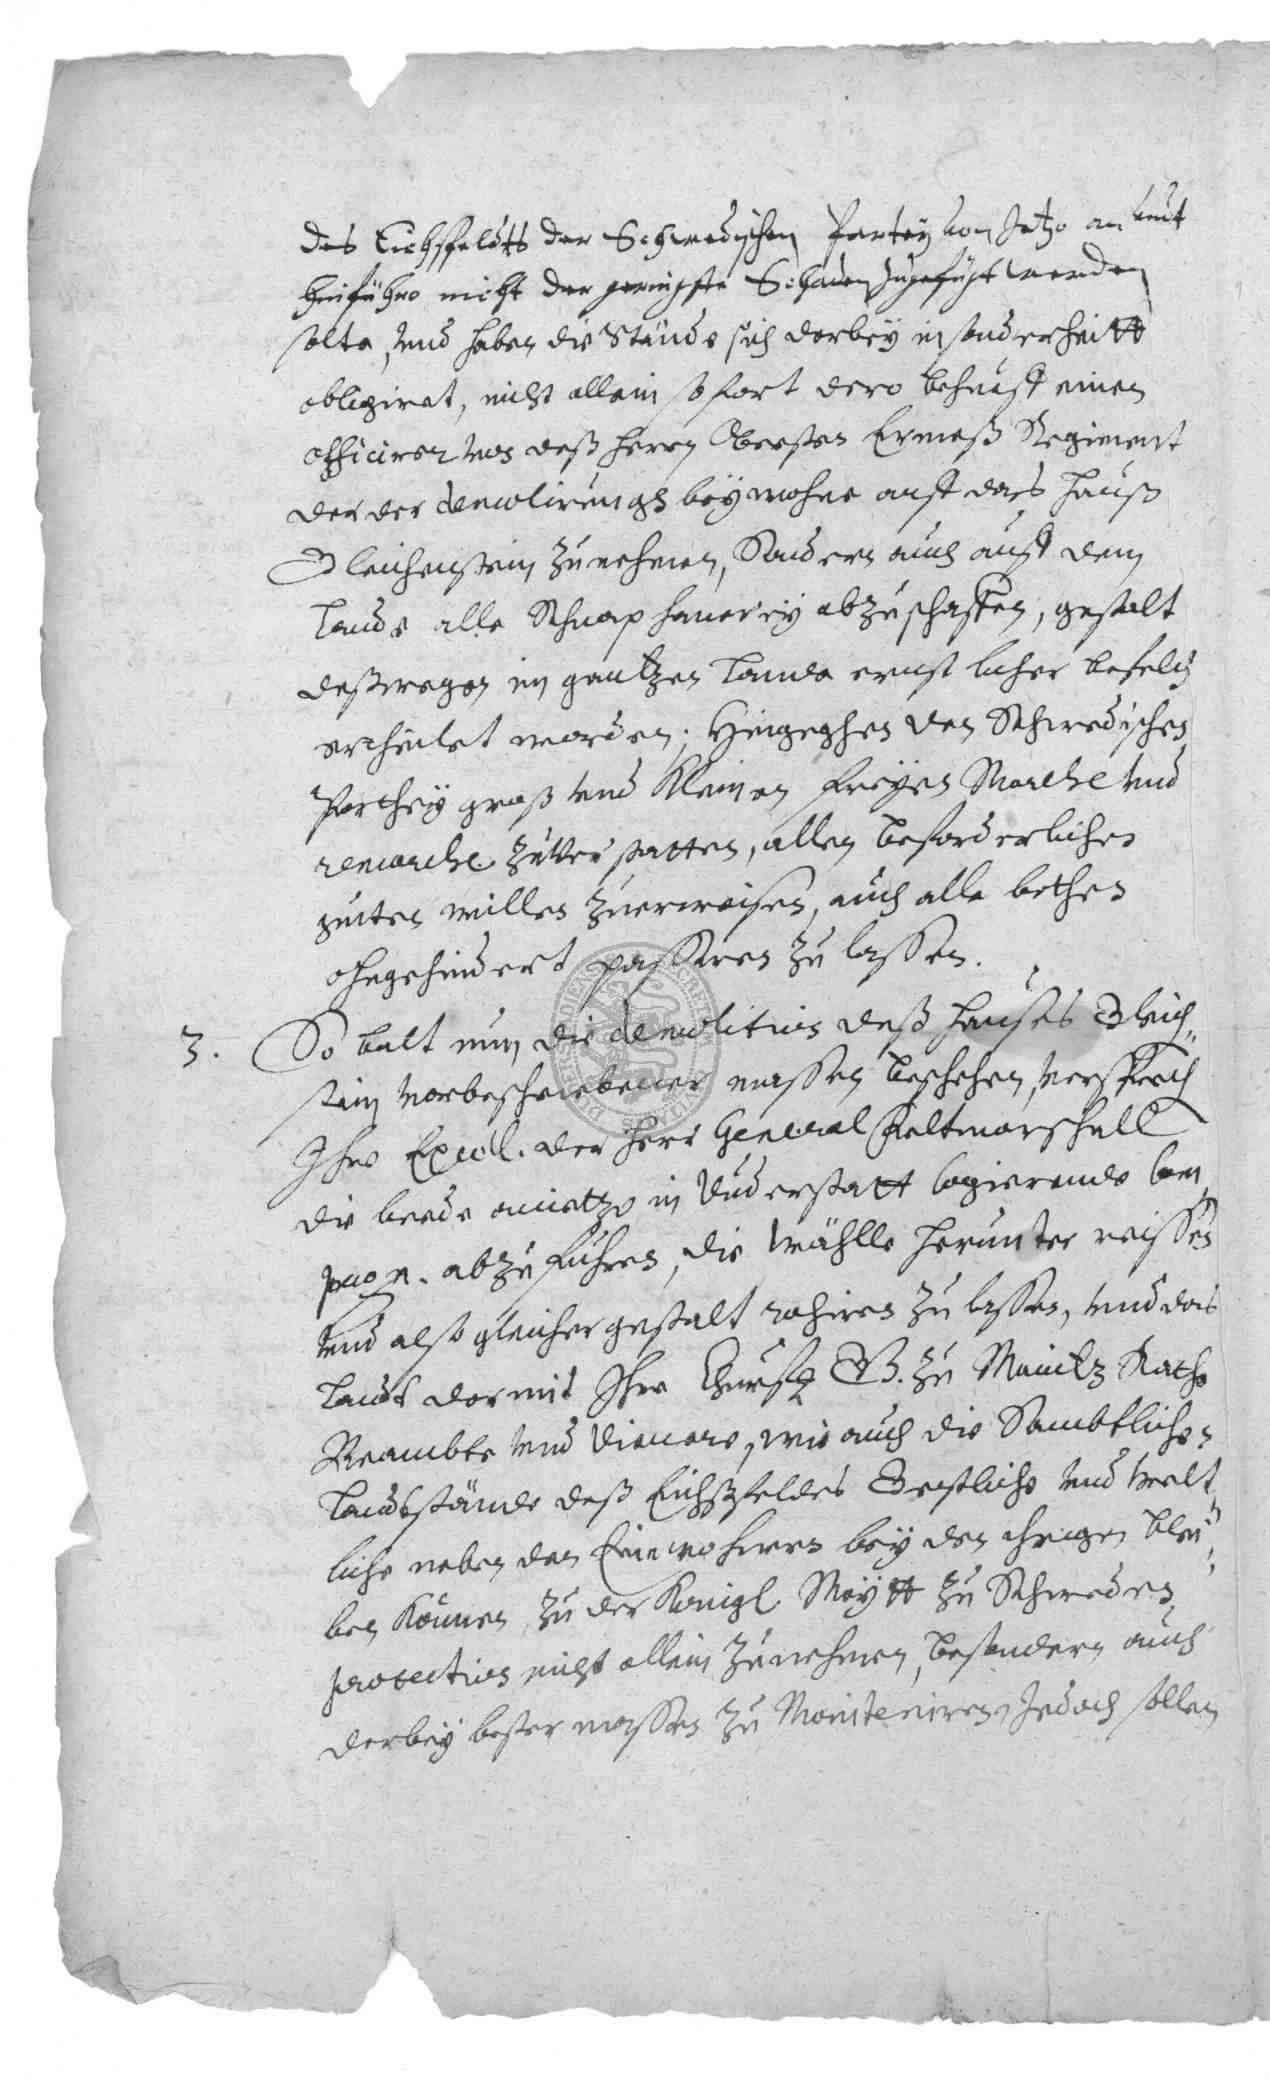 des Eichsfeldts der Schwedischen Partey von Jetzo an undt
hinführo nicht der geringste Schaden zugefügt werden
solte, vnd haben die Stände sich darbey in sonderheitt
obligiret, nicht allein so fort dero behueff einen
officirer von deß herrn Obersten Ermeß Regiment
der der demolirungh beywohne auff das Hauß
Gleichenstein zunehmen, Sondern auch auff dem
Lande alle Schnaphanerey abzuschaffen, gestalt
deßwegen im gantzen Lande ernstlicher befelch
ertheilet worden; Hingeghen den Schwedischen
Parthey groß vnd Kleinen freÿen Marche vnd
remarche zuverstatten, allen beforderlichen
guten willen zuerweisen, auch alle bothen
ohngehindert passiren zu lassen.
3. So balt nun die demolition deß Hauses Gleich„
stein vorbeschriebener massen beschehen, versprech
Ihre Excell. der Herr General Feltmarschall
die beede anietzo in Duderstatt logierende Com„
pagn. abzuführen, die Wählle herunter reissen
vnd also gleichergestalt rasiren zu lassen, vnd das
Landt darmit Ihre Churf. G. zu Maintz Räthe
Beambte vnd Dienere, wie auch die Sambtliche
Landtstände deß Eichßfeldes Geistliche vnd Welt„
liche neben den Einwohnern beÿ den ihrigen blei„
ben Können, zu der Königl. Maÿtt zu Schweden
protection nicht allein zunehmen, besondern auch
darbeÿ bester massen zu Mainteniren, Jedoch sollen